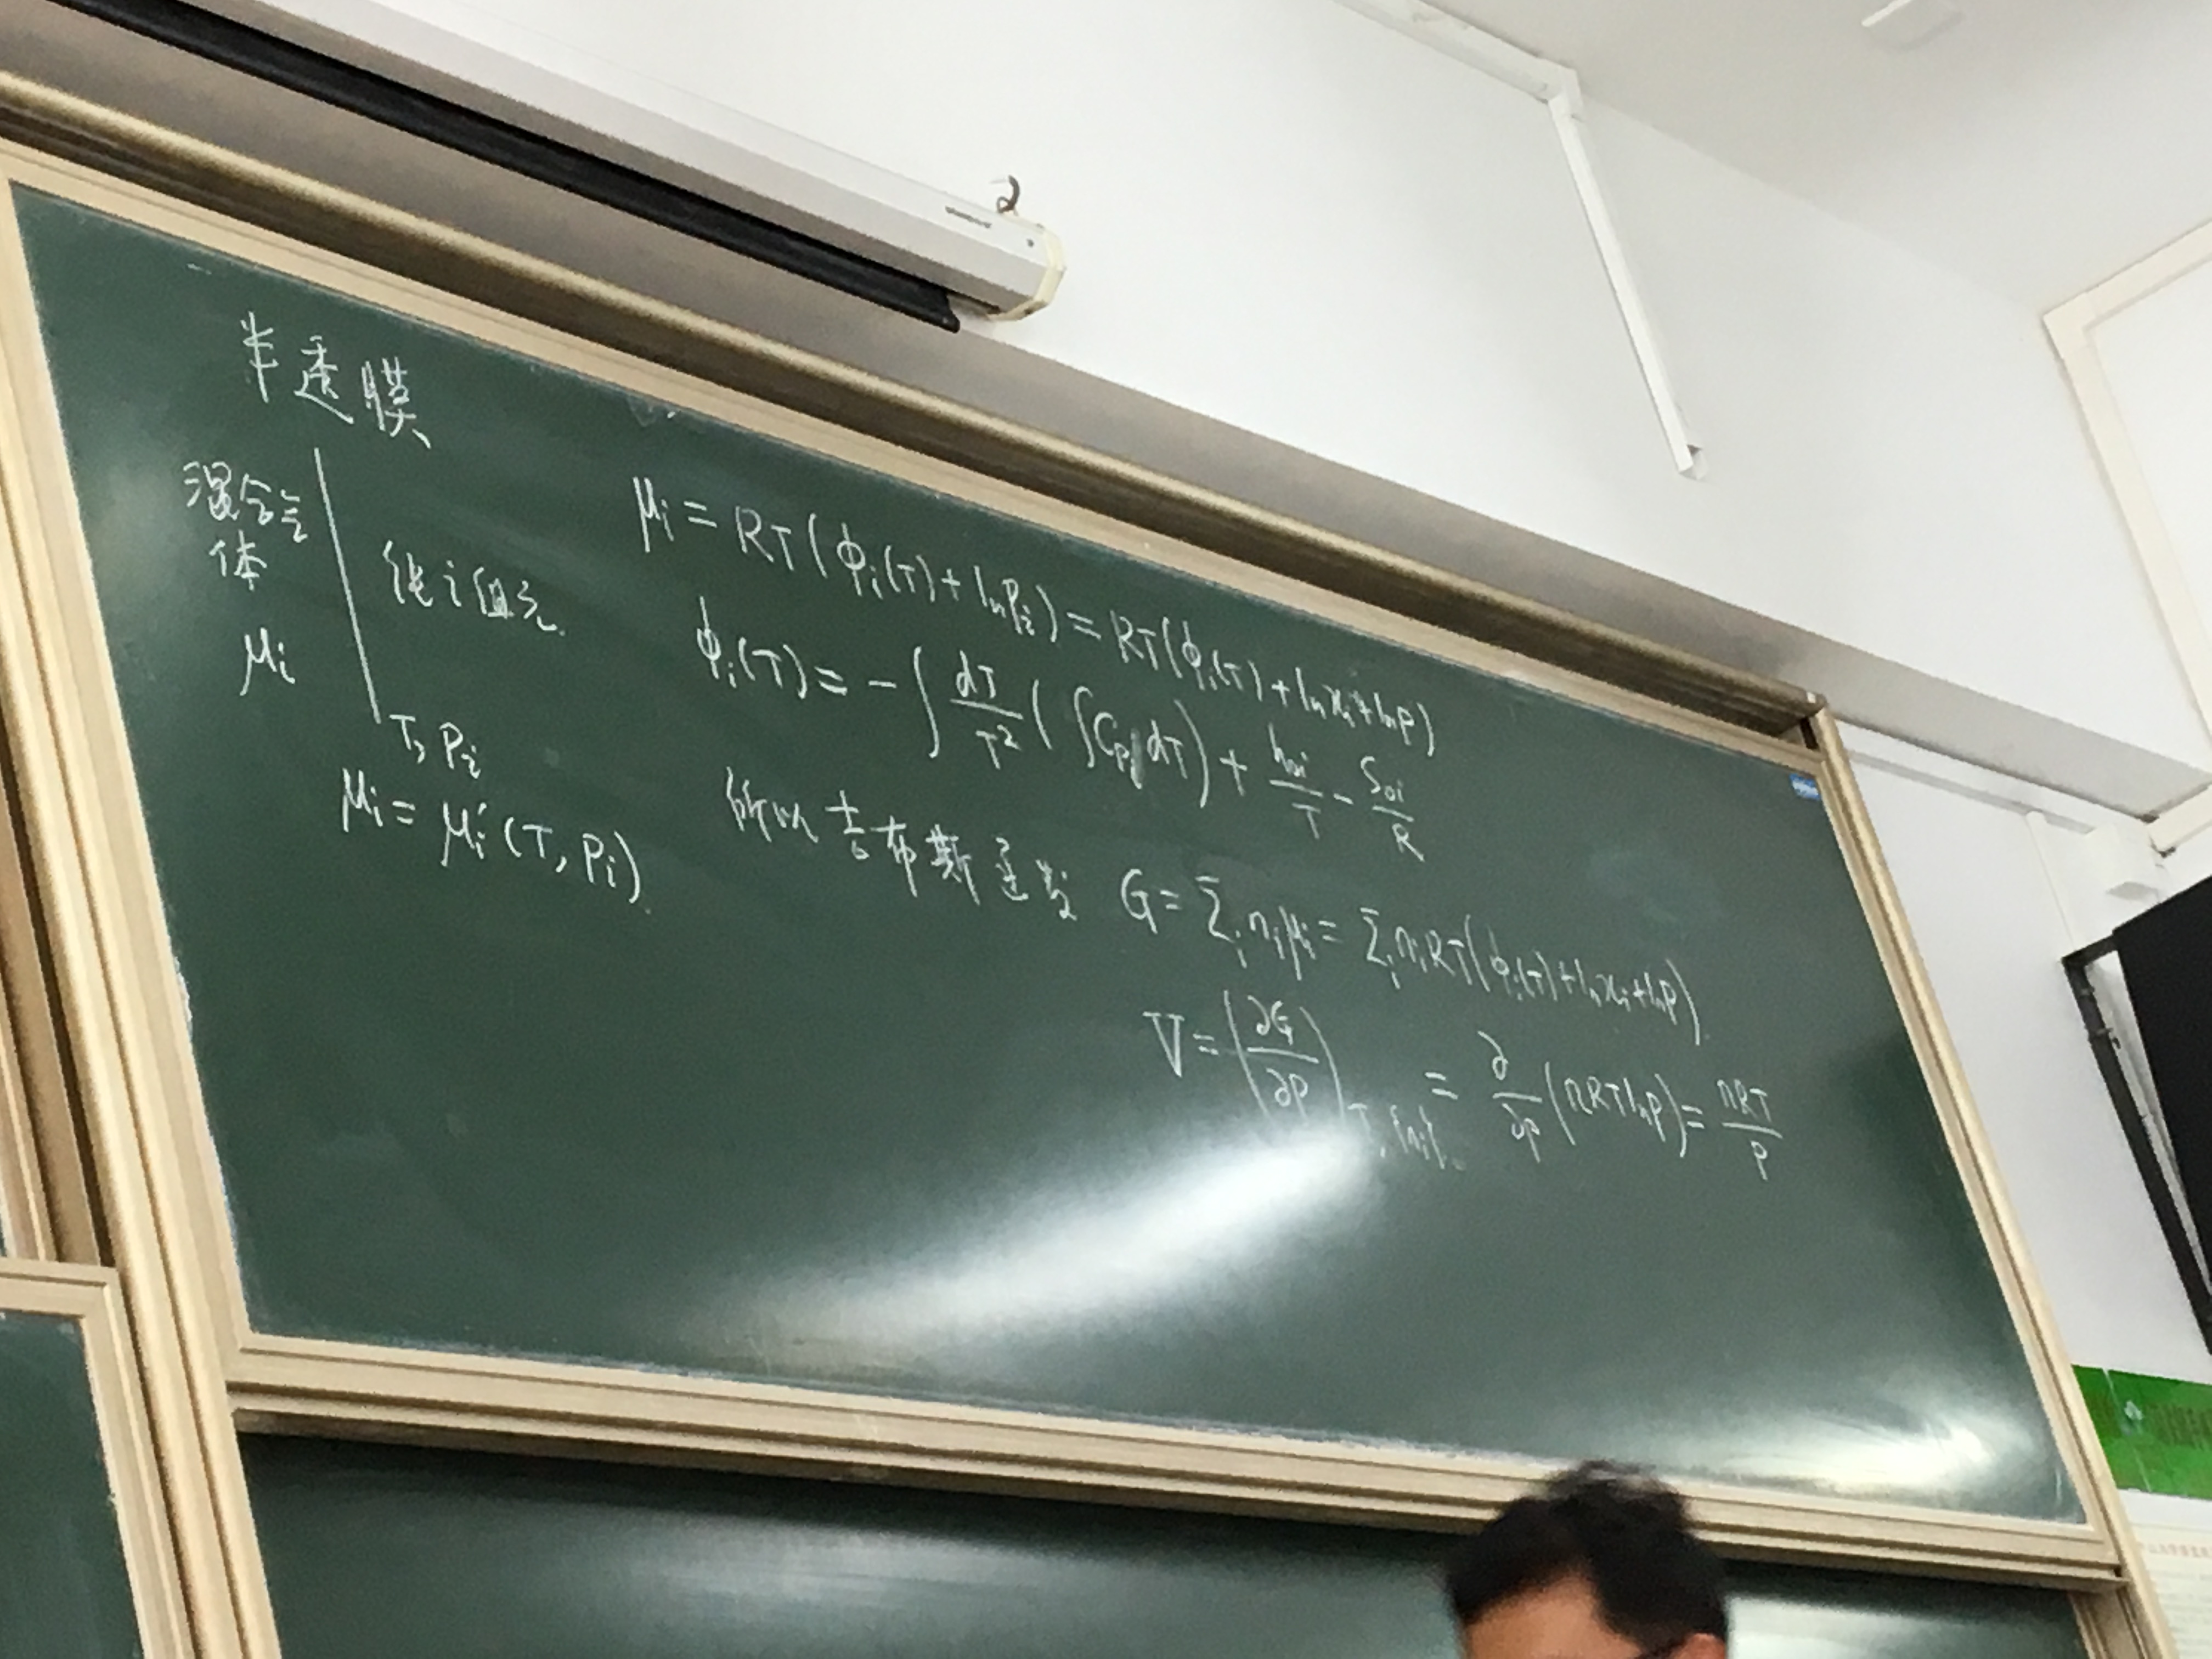 半透膜
混合气
体
μi
纯i组元
T, Pi
μi = μi'(T, Pi)
μi = RT(φi(T) + ln Pi) = RT(φi(T) + ln xi + ln P)
φi(T) = -∫ dT/T² (∫ CPi dT) + h0i/T - S0i/R
所以吉布斯函数 G = Σi ni μi = Σi ni RT(φi(T) + ln xi + ln P)
V = (∂G/∂P)T,{ni} = ∂/∂P (nRT ln P) = nRT/P